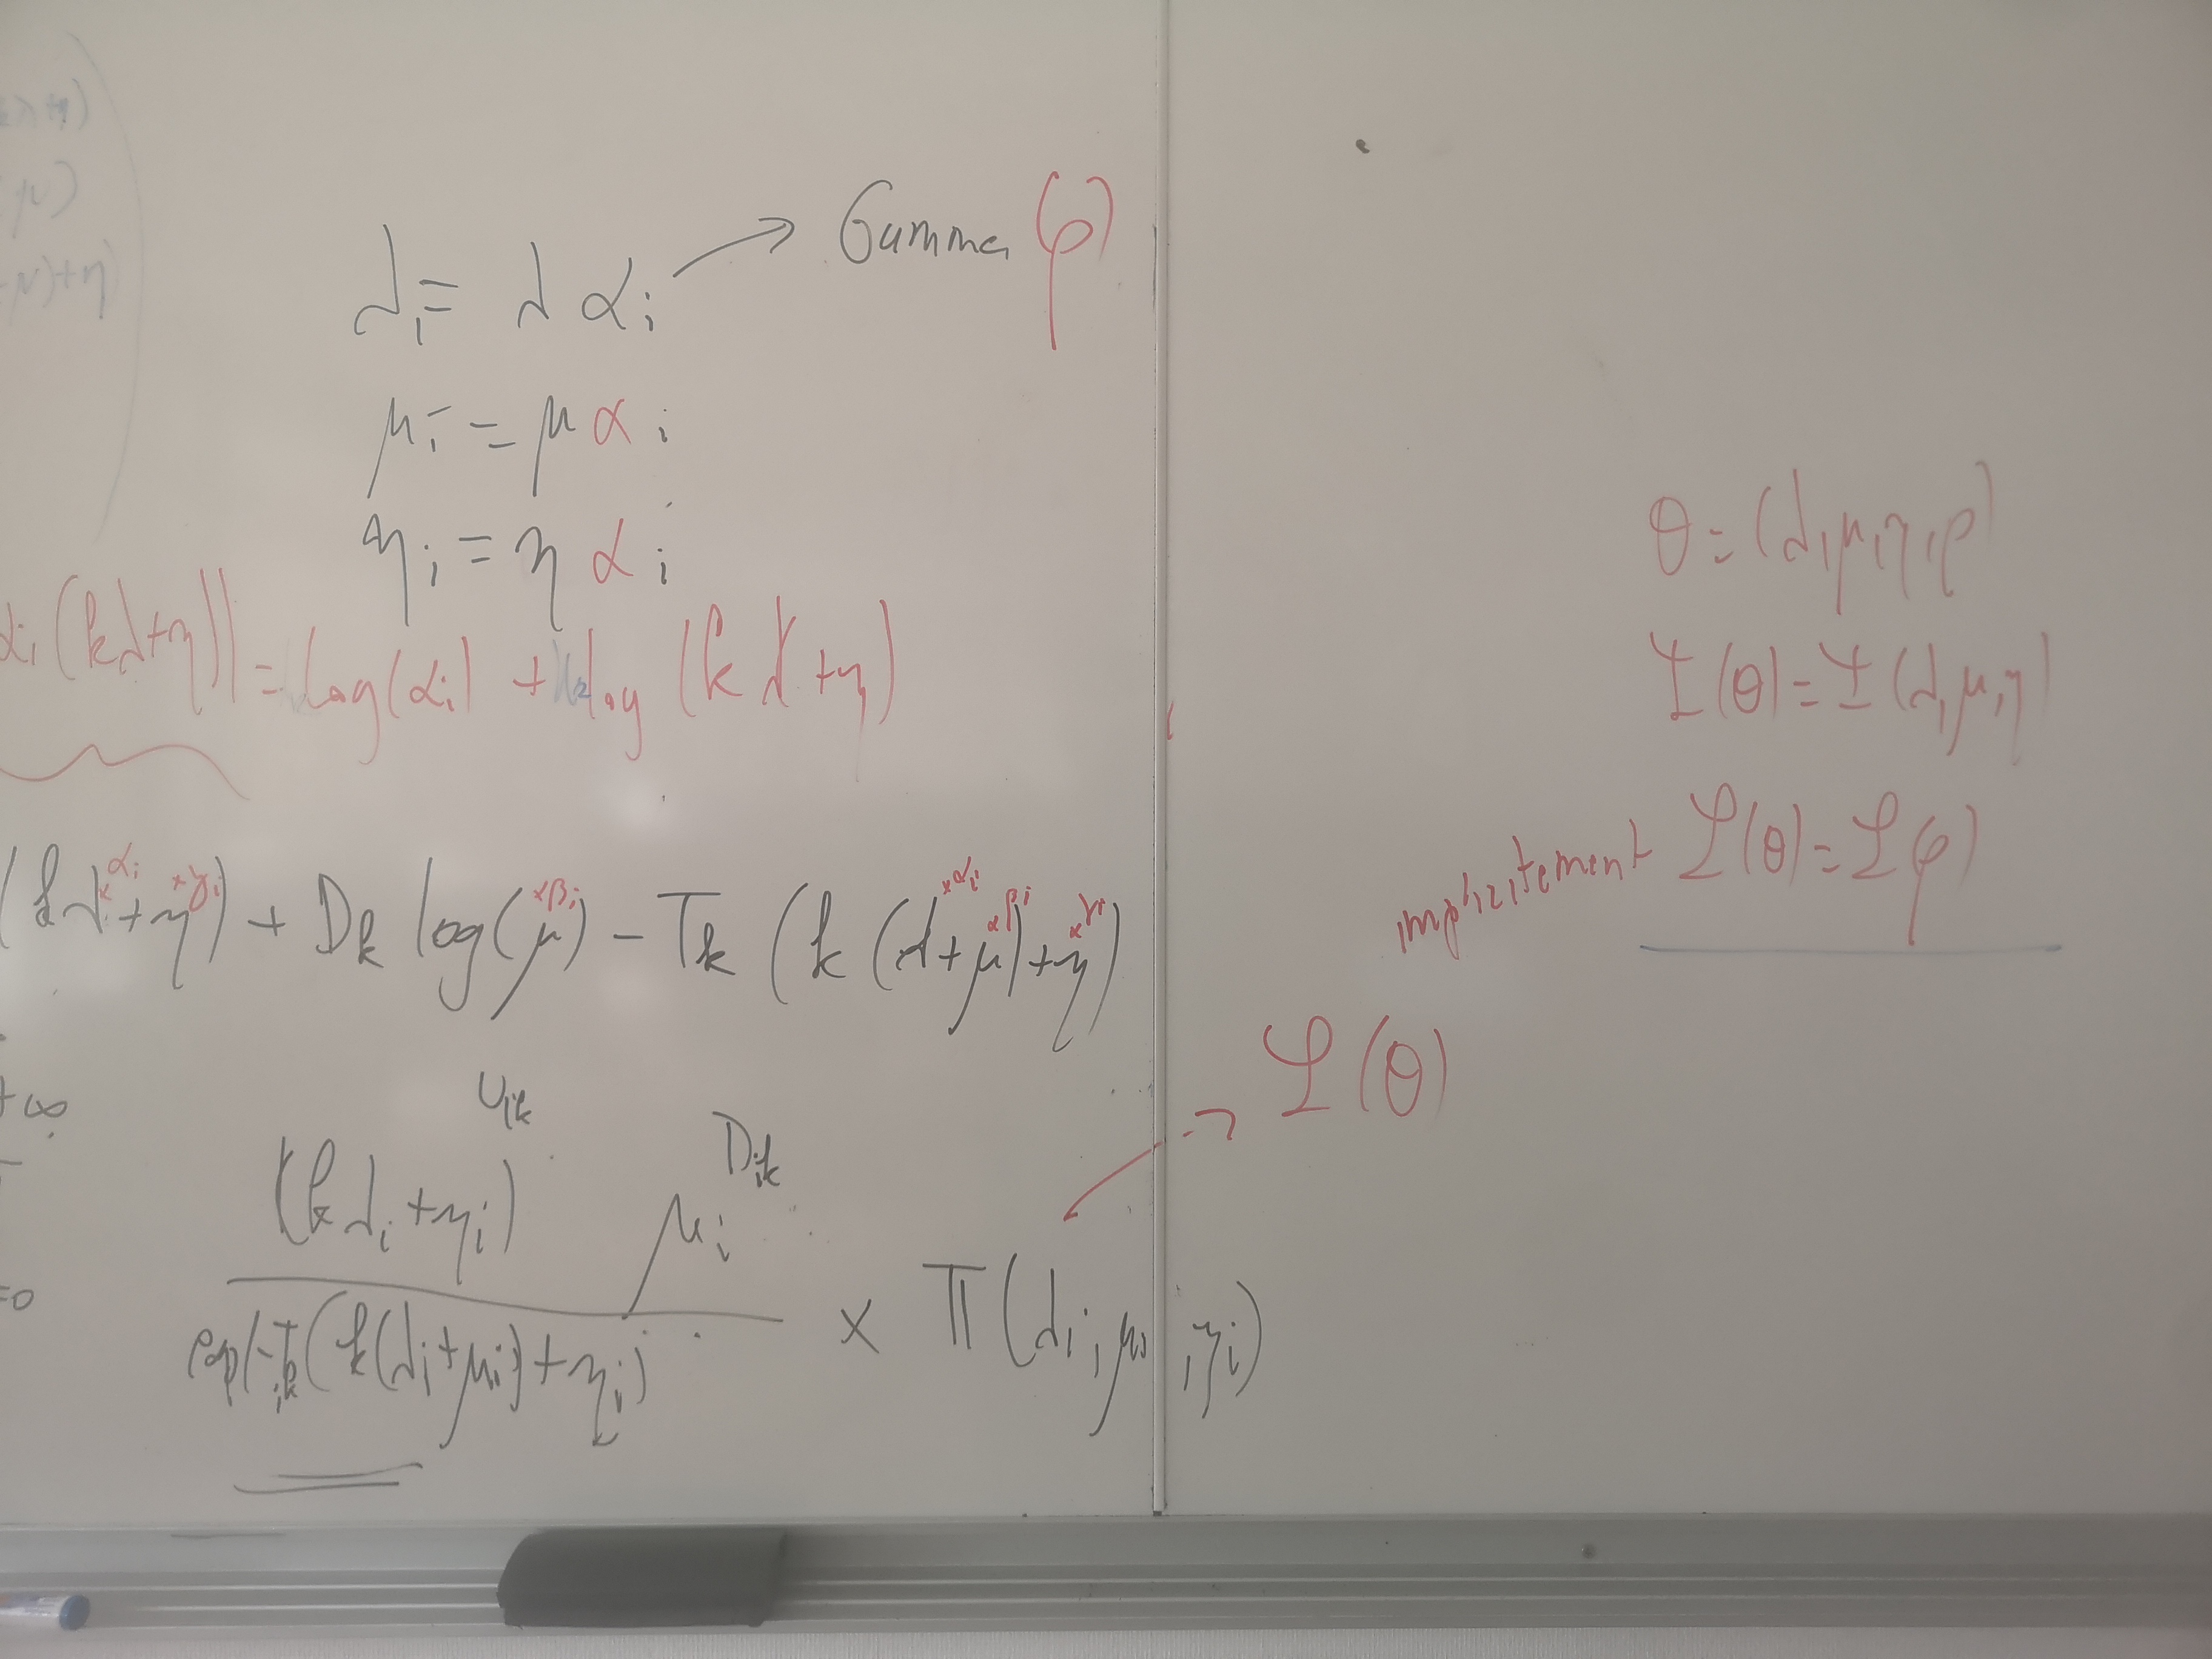 λ+η)
μ)
μ)+η)
λi = λ αi → Gamma (φ)
μi = μ αi
ηi = η αi
αi (kλ+η)) = log(αi) + log (kλ+η)
(kλ ×αi + η ×γi) + Dk log(μ ×βi) − Tk (k (λ ×αi + μ ×βi) + η ×γi)
+∞
=0
(kλi + ηi)^Uik μi^Dik
exp(−Tik(k(λi+μi)+ηi) × π(λi, μi, ηi)
→ ℒ(θ)
θ = (λ, μ, η, φ)
Ⱡ(θ) = Ⱡ(λ, μ, η)
implicitement ℒ(θ) = ℒ(φ)